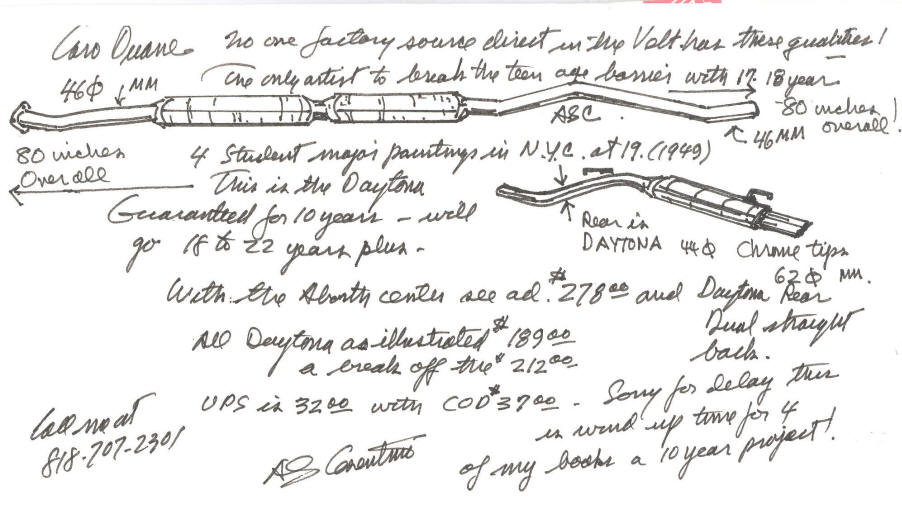 Caro Duane no one factory source direct in the Volt has these qualities!
The only artist to break the teen age barrier with 17. 18 year
46Ø MM
ASC
80 inches
overall!
46 MM
80 inches
Overall
4 Student major paintings in N.Y.C. at 19. (1949)
This is the Daytona
Guaranteed for 10 years - will
go 18 to 22 years plus -
Rear in
DAYTONA
44Ø
Chrome tips
62Ø MM.
With the Abarth center see ad. $278.00 and Daytona Rear
Dual straight
back.
All Daytona as illustrated $189.00
a break off the $212.00
UPS is 32.00 with COD $37.00 - Sorry for delay this
is wind up time for 4
of my books a 10 year project!
Call me at
818-707-2301